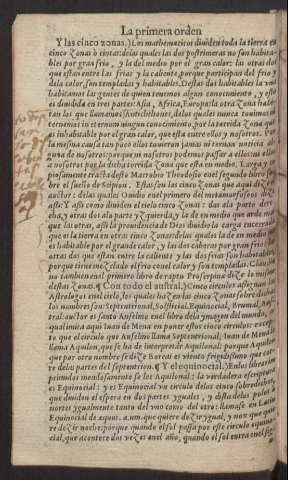 La primera orden
Y las cinco zonas.) Los mathematicos diuiden toda la tierra en
cinco zonas o cintas: delas quales las dos postrimeras no son habita-
bles por gran frio, y la del medio por el gran calor: las otras dos
que estan entre las frias y la caliente, porque participan del frio y
dela calor son templadas y habitables. Destas dos habitables la vna
habitamos las gentes de quien tenemos algun conocimiento, y esta
es diuidida en tres partes: Asia, Africa, Europa: la otra zona habi-
tan los que llamamos Antichthones, delos quales nunca touimos ni
ternemos ni ternan ningun conocimiento, por la torrida zona que
es inhabitable por el gran calor, que esta entre ellos y nosotros. Por
la mesma causa tan poco ellos touieron jamas ni ternan noticia al-
guna de nosotros: porque ni nosotros podemos passar a ellos ni ellos
a nosotros por la dicha torrida zona que esta en medio. Larga y co-
piosamente tracta desto Macrobio Theodosio enel segundo libro so-
bre el sueño de Scipion. Estas son las cinco zonas que aqui dize el
auctor: delas quales Ouidio enel primero del metamorfoseos dize
assi: Y assi como diuiden el cielo cinco zonas: dos ala parte dere-
cha, y otras dos ala parte yzquierda, y la de en medio que arde mas
que las otras, assi la prouidencia de Dios diuidio la carga encerrada
que es la tierra en otras cinco zonas: delas quales la de en medio no
es habitable por el grande calor, y las dos caberas por gran frio: las
otras dos que estan entre la caliente y las dos frias son habitables,
porque tiene mezclado el frio conel calor y son templadas. Claudia
no tambien enel primero libro de raptu Proserpine dize lo mesmo
destas zonas. ¶ Con todo el austral.) Cinco circulos assignan los
Astrologos enel cielo, los quales hazen las cinco zonas sobredichas,
los nombres son: Septentrional, Solsticial, Equinocial, Brumal, Aus-
tral: auctor es santo Anselmo enel libro dela ymagen del mundo, al
qual imita aqui Iuan de Mena en poner estos cinco circulos: excep-
to que el circulo que Anselmo llama Septentrional, Iuan de Mena
llama Aquilon, que se ha de interpretar Aquilonal: porque Aquilon
que por otro nombre se dize Boreas es viento frigidissimo que cor-
re dela parte del septentrion. ¶ Y el equinocial.) Enlos libros im-
primidos mendosamente se lee Aquilonal: la verdadera escriptura
es Equinocial: y es Equinocial vn circulo delos cinco sobredichos,
que diuiden el espera en dos partes yguales, y dista delos polos o
nortes ygualmente tanto del vno como del otro: llamase en Latin
Equinocial de equus. a. um. que quiere dezir ygual, y nox que quie-
re dezir noche: porque quando el sol passa por este circulo equino-
cial, que acontece dos vezes enel año, quando el sol entra enel sig-